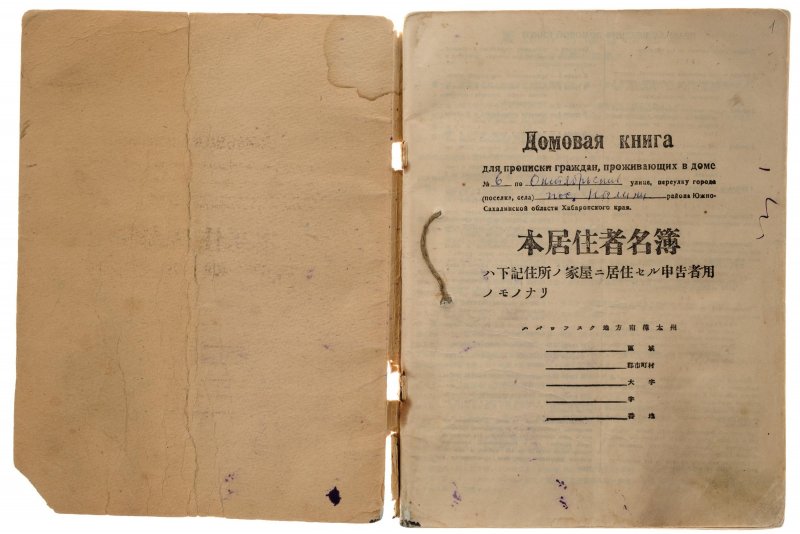 1
Домовая книга
для прописки граждан, проживающих в доме
№ 6 по Октябрьские улице, переулку города
(поселка, села) пос. района Южно-
Сахалинской области Хабаровского края.
本居住者名簿
ハ下記住所ノ家屋ニ居住セル申告者用
ノモノナリ
ハバロフスク地方南薩太州
區域
郡市町村
大字
字
番地